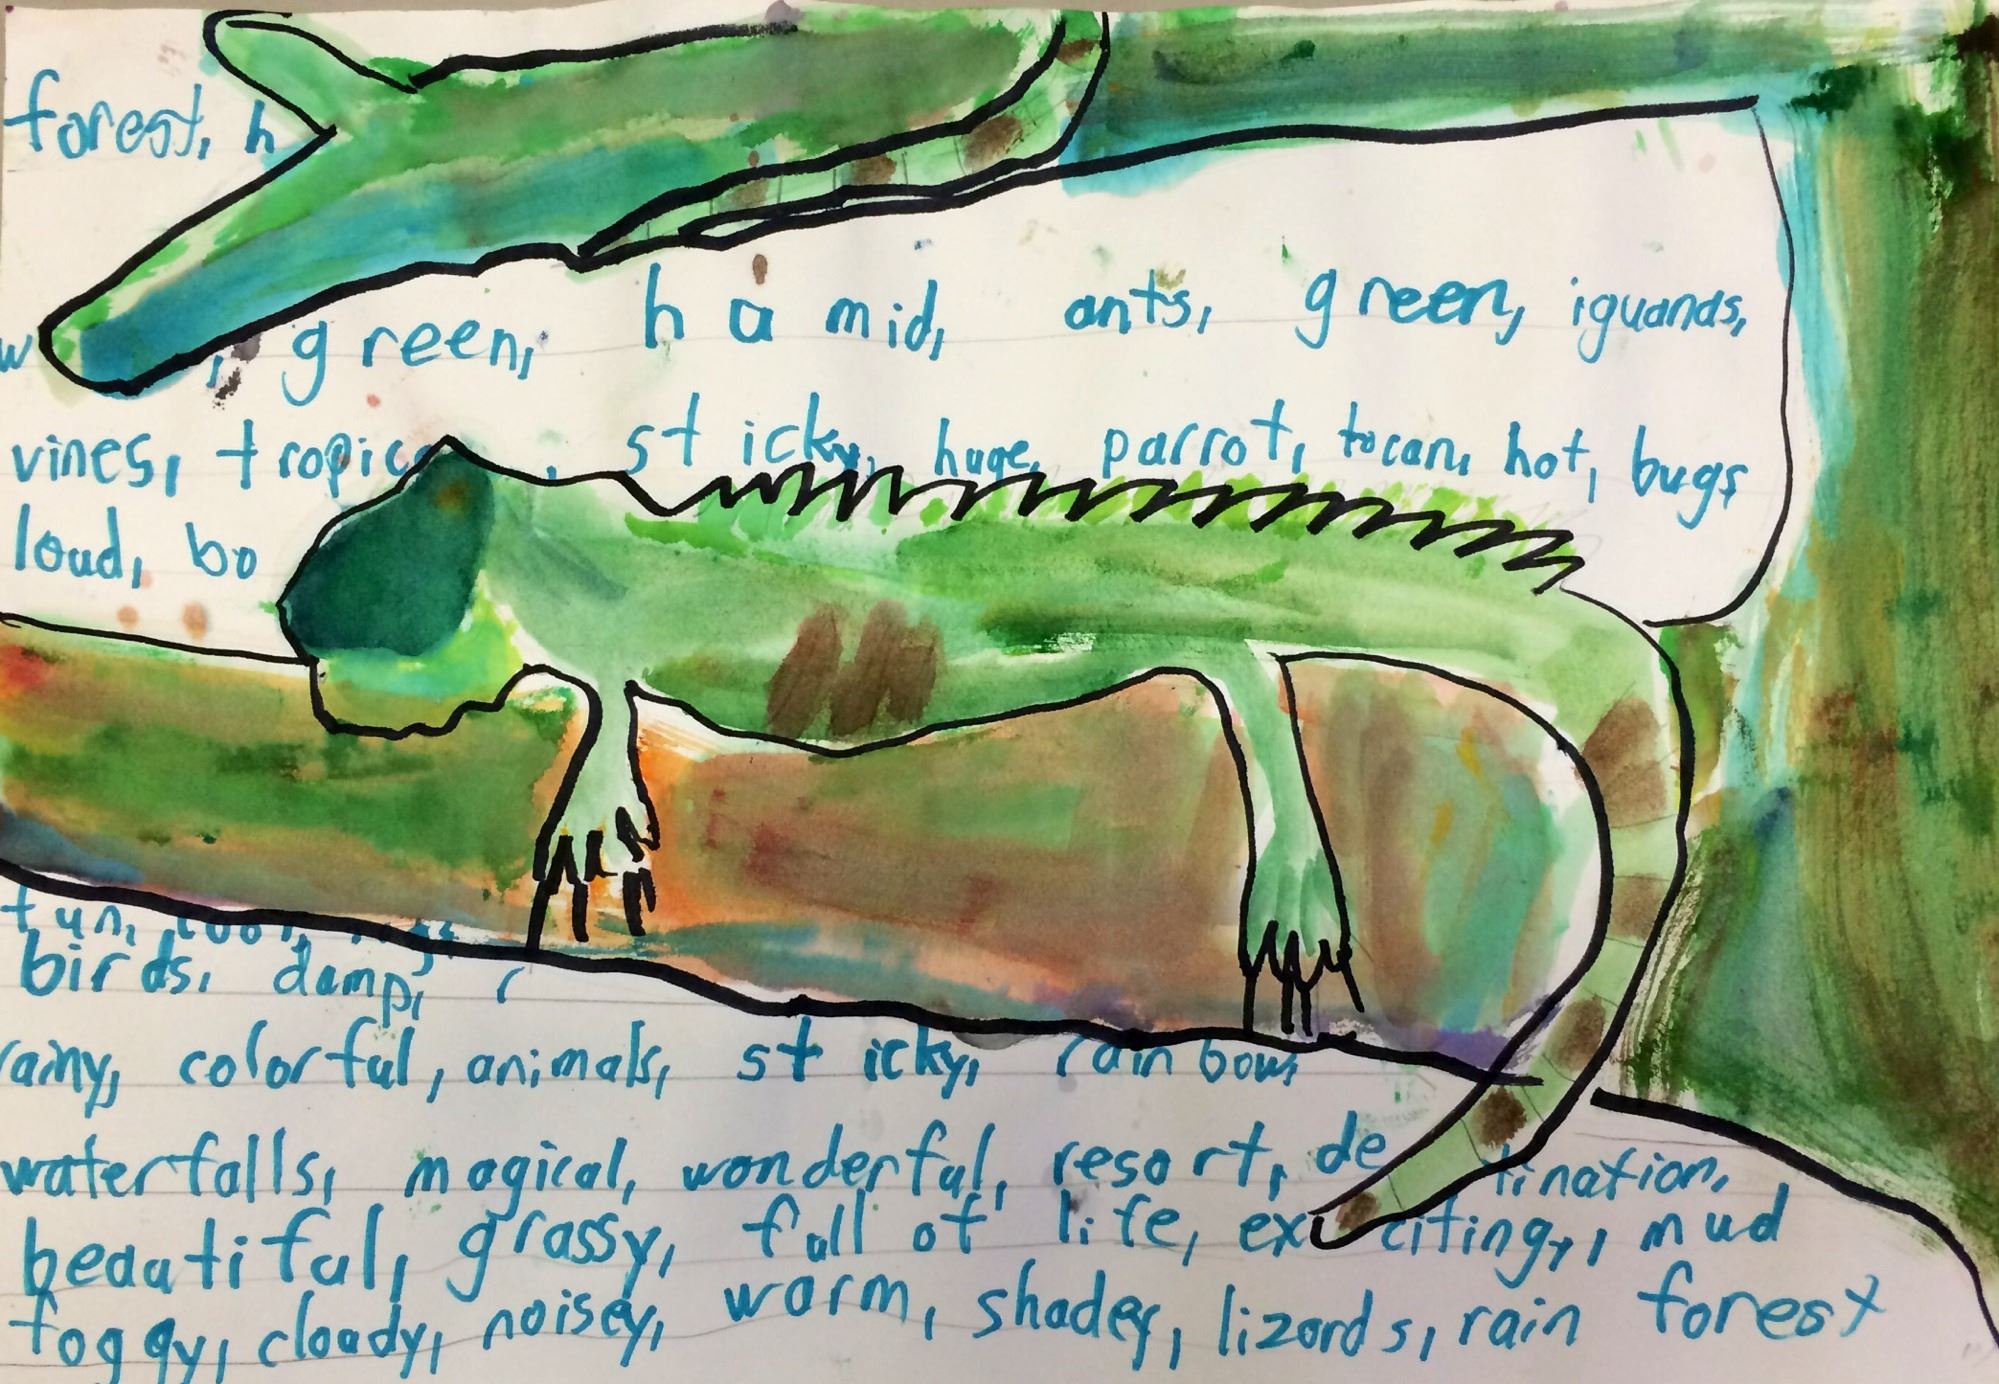 forest, h
green, hamid, ants, green, iguanas,
vines, tropic , sticky, huge, parrot, tocan, hot, bugs
loud, bo
birds, damp,
rainy, colorful, animals, sticky, rainbow,
waterfalls, magical, wonderful, resort, de tination,
beautiful, grassy, full of life, exciting, mud
foggy, cloudy, noisey, warm, shadey, lizards, rain forest